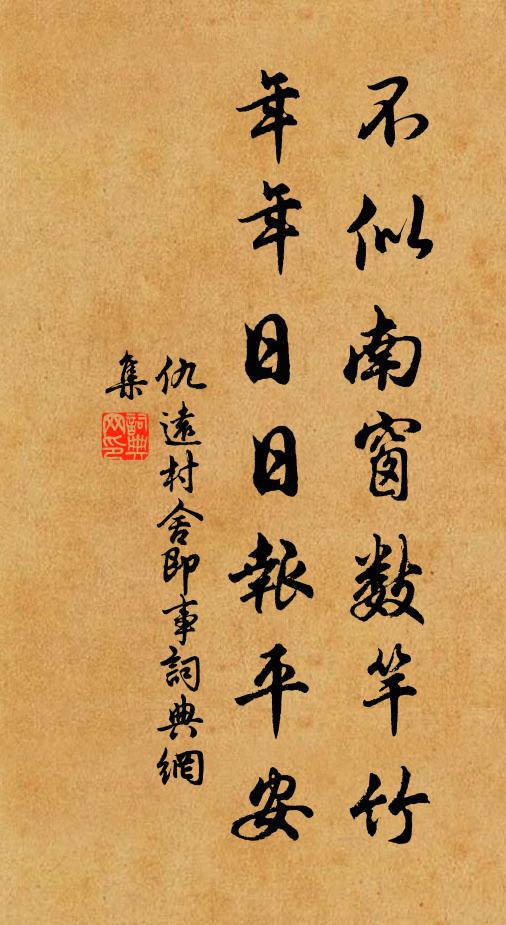 不似南窗数竿竹
年年日日報平安
仇遠村舍即事詞典網
集
詞典
网印